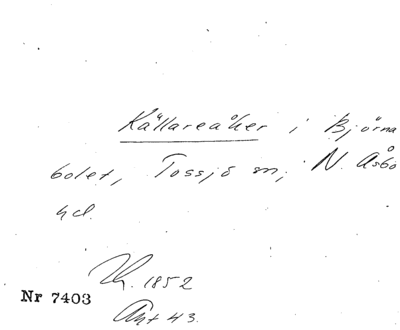 Källareåker i Björna
bolet, Tossjö sn, N. Åsbo
hd.
Lh. 1852
Nr 7403
Akt 43.